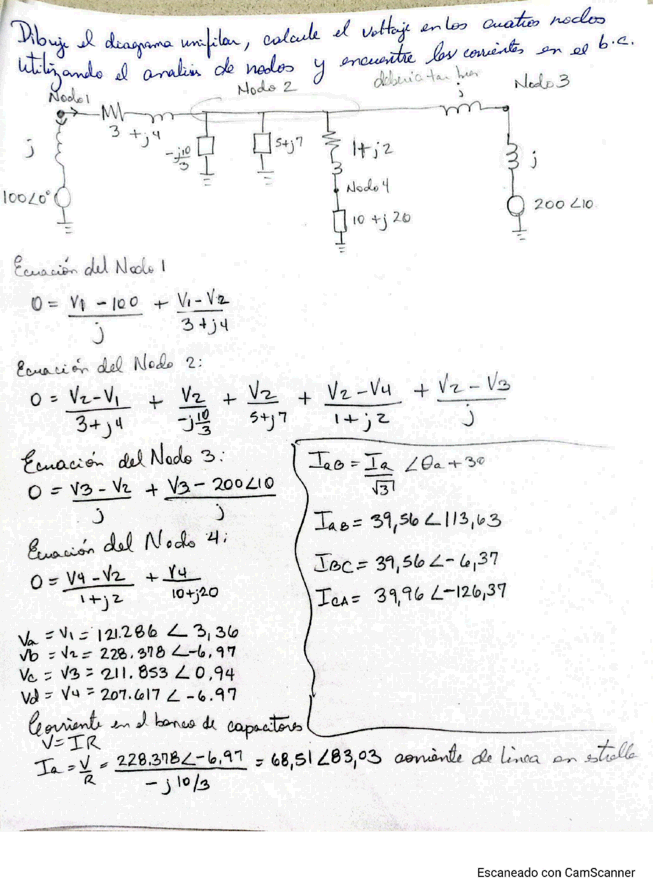 Dibuje el diagrama unifilar, calcule el voltaje en los cuatros nodos
Utilizando el analisis de nodos y encuentre las corrientes en el b.c.
Nodo 1
Nodo 2
deberia tambien
j
Nodo 3
3 + j4
-j10/3
5+j7
1+j2
j
j
Nodo 4
100∠0°
10 + j 20
200 ∠10
Ecuación del Nodo 1
0 = (V1 - 100)/j + (V1 - V2)/(3 + j4)
Ecuación del Nodo 2:
0 = (V2 - V1)/(3 + j4) + V2/(-j10/3) + V2/(5+j7) + (V2 - V4)/(1+j2) + (V2 - V3)/j
Ecuación del Nodo 3:
0 = (V3 - V2)/j + (V3 - 200∠10)/j
Ecuación del Nodo 4:
0 = (V4 - V2)/(1+j2) + V4/(10+j20)
Va = V1 = 121.286 ∠ 3,36
Vb = V2 = 228.378 ∠-6,97
Vc = V3 = 211.853 ∠ 0,94
Vd = V4 = 207.617 ∠ -6.97
IaB = Ia/√3 ∠θa + 30
IaB = 39,56 ∠113,03
IBC = 39,56 ∠-6,37
ICA = 39,96 ∠-126,37
Corriente en el banco de capacitores
V = IR
Ia = V/R = (228,378∠-6,97)/(-j10/3) = 68,51 ∠83,03 corriente de linea en estrella
Escaneado con CamScanner